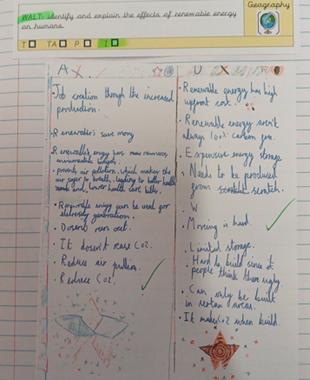 Geography
WALT: identify and explain the effects of renewable energy
on humans.
T TA P I
A
Job creation though the increased
production.
Renewables save mony
Renewable energy has
prevents air pollution, which makes the
air safer to breath, leading to better health
and lower health care bills.
Renewable energy can be used for
electricity generation.
Doesn't run out.
It doesn't cause Co2.
Reduce air pollution.
Reduce Co2.
D
Renewable energy has high
upfront cost.
Renewable aren't
always 100% carbon free.
Expensive energy storage
Needs to be produced
from scratch.
W
Moving is hard.
Limited storage.
Hard to build since
people think there ugly.
Can only be built
in certain areas.
It makes Co2 when build.